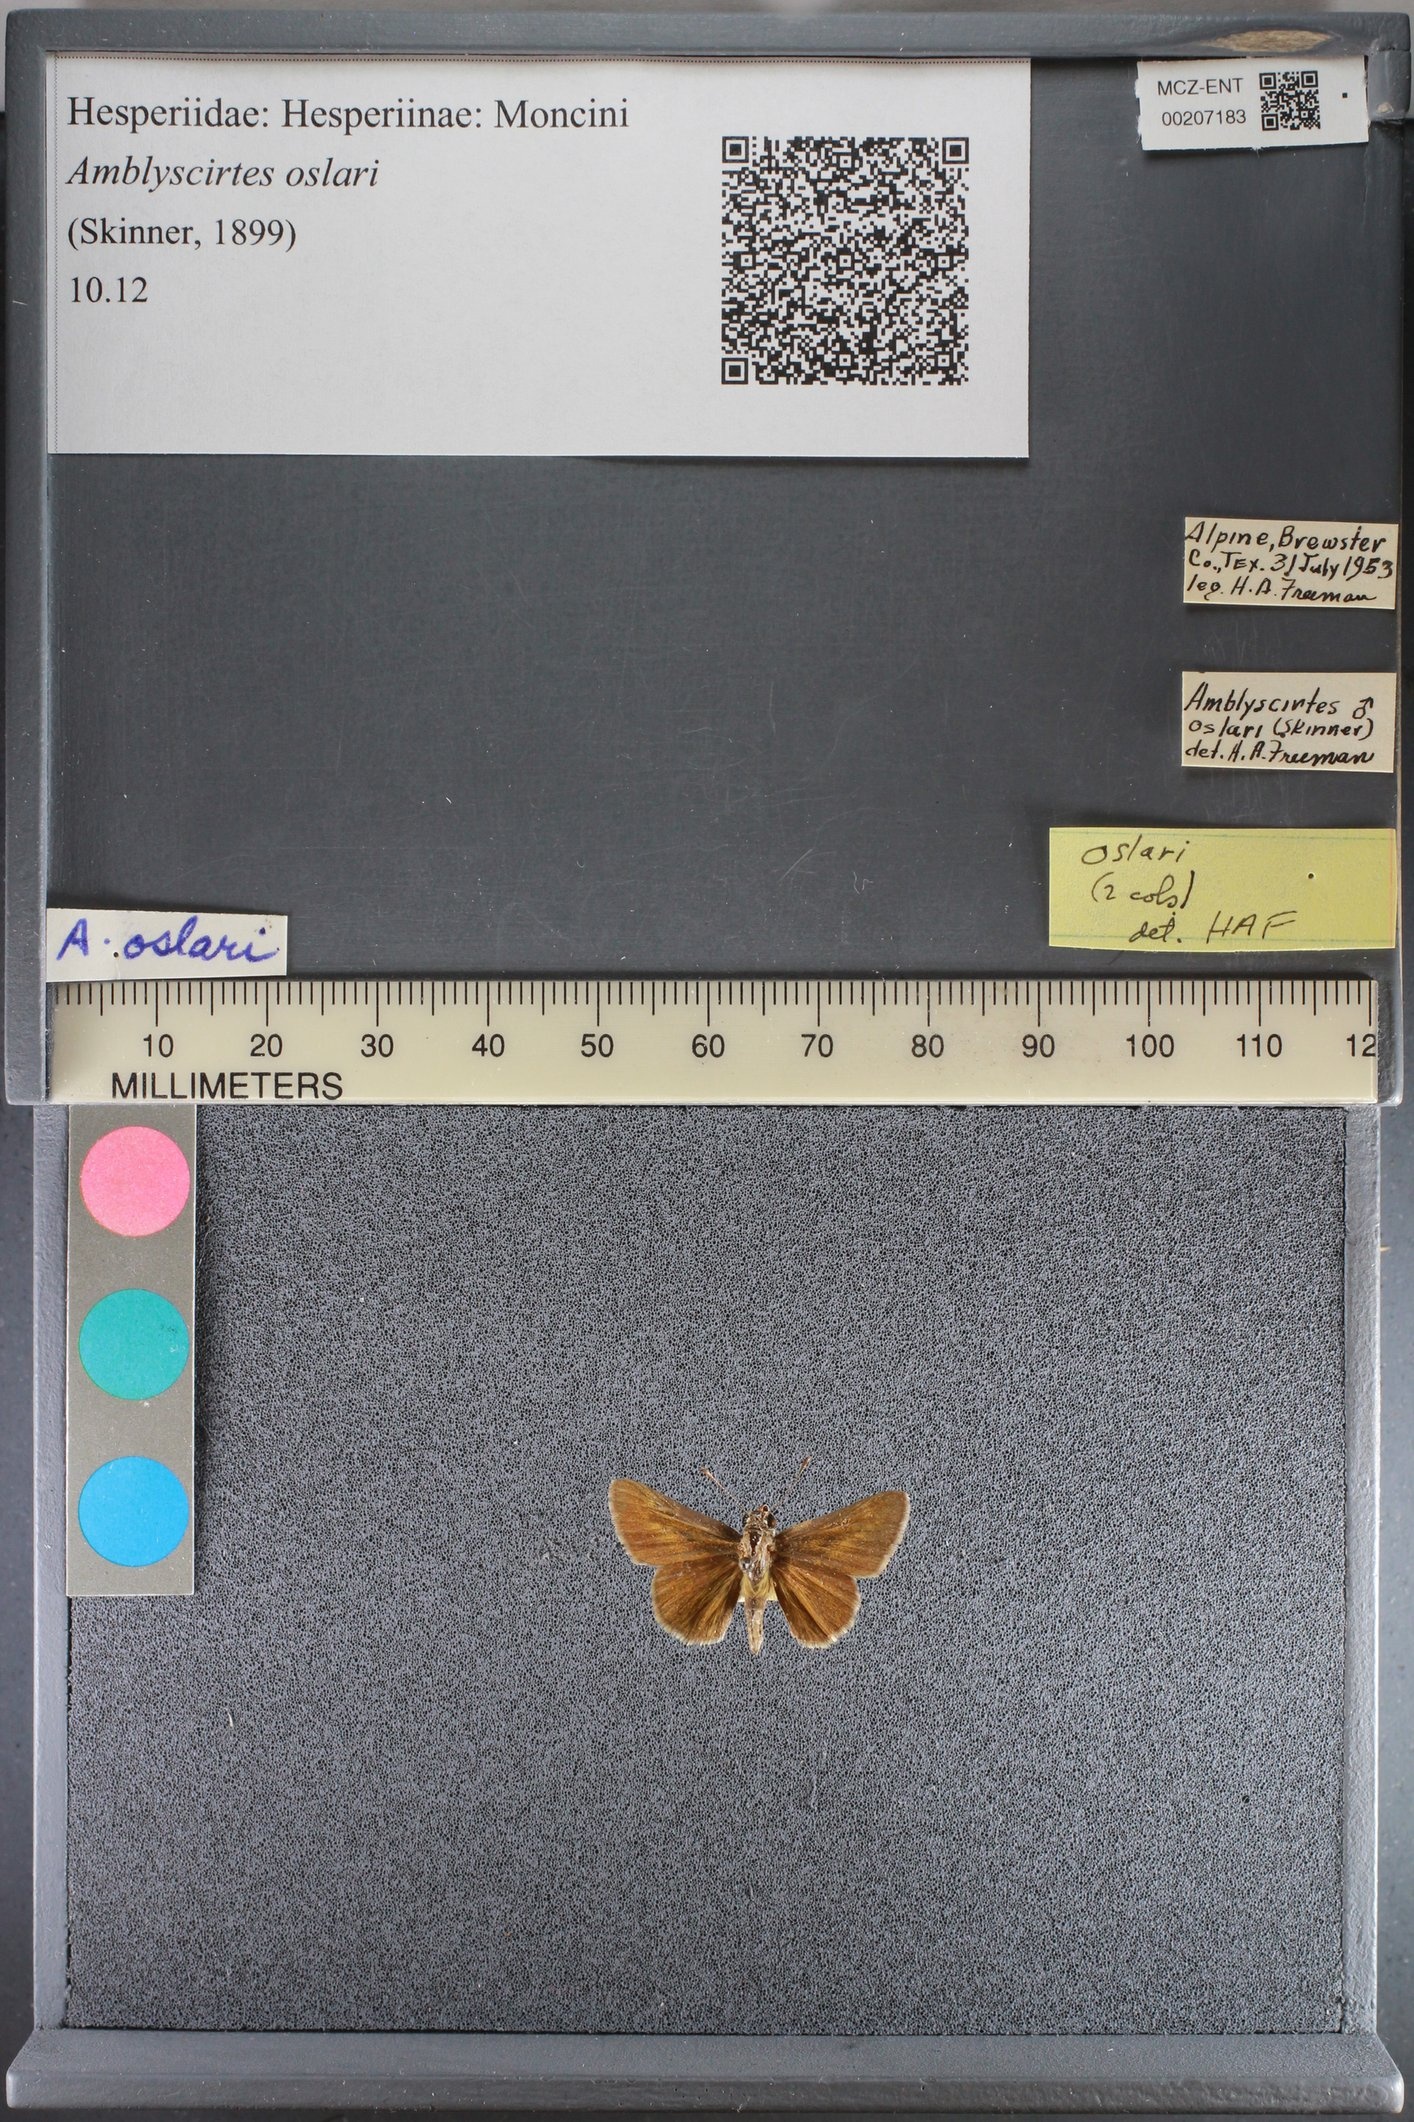 Hesperiidae: Hesperiinae: Moncini
Amblyscirtes oslari
(Skinner, 1899)
10.12
MCZ-ENT
00207183
Alpine, Brewster
Co., Tex. 31 July 1953
leg. H. A. Freeman
Amblyscirtes ♂
oslari (Skinner)
det. H. A. Freeman
oslari
(2 cols)
det. HAF
A. oslari
10 20 30 40 50 60 70 80 90 100 110 12
MILLIMETERS